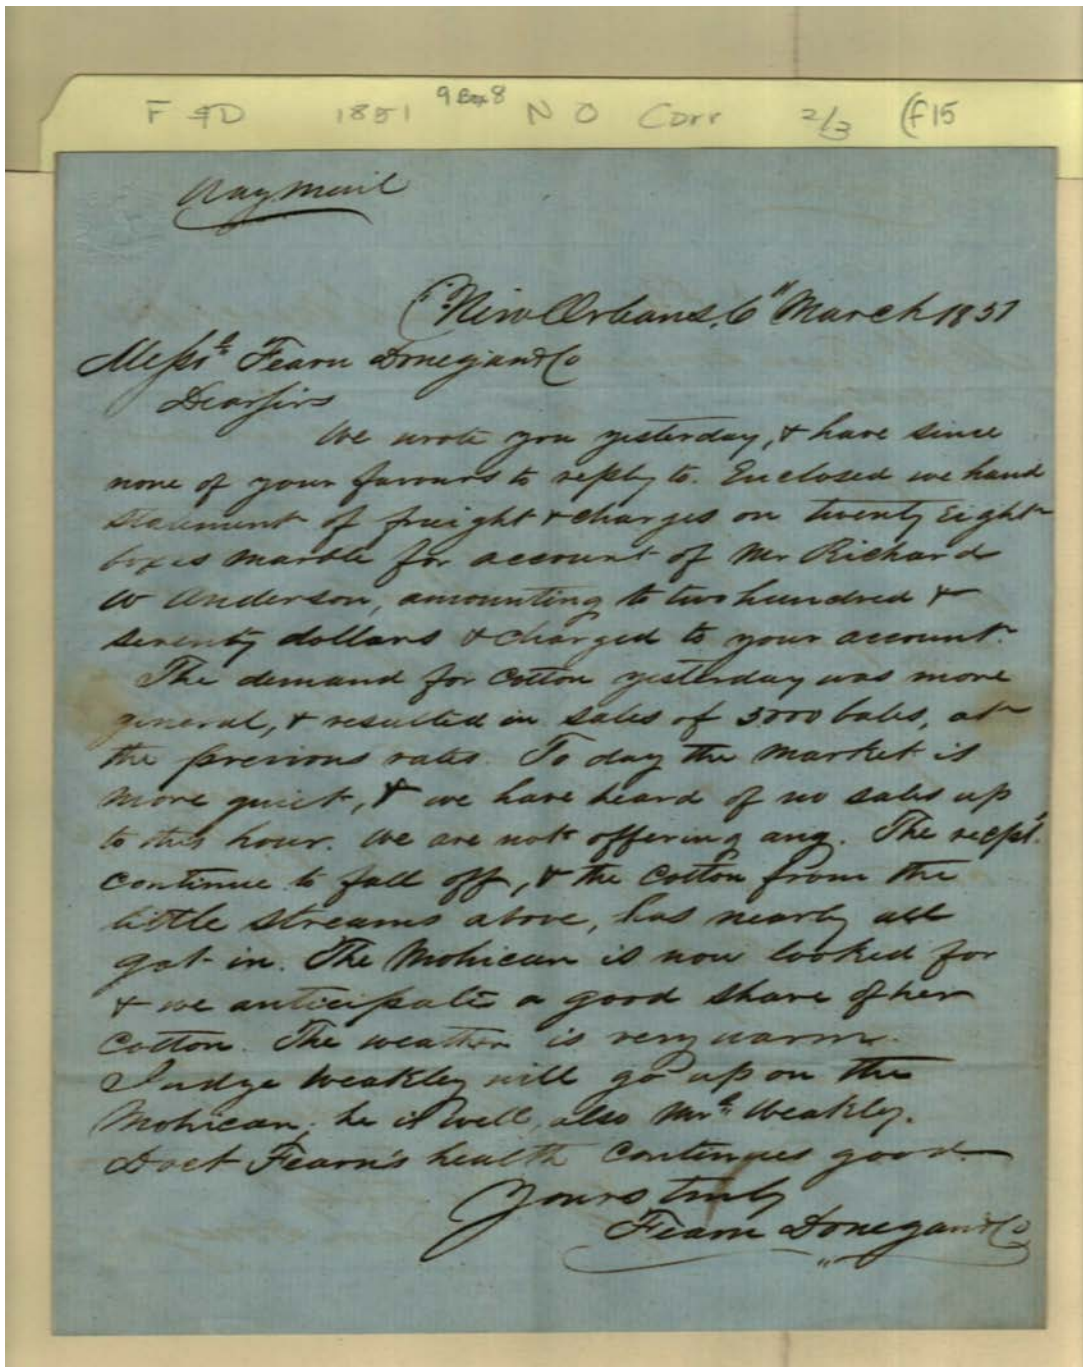 F & D 1851 9 Box 8 N O Corr 2/3 (f15
Way mail
New Orleans, 6" March 1851
Messrs Fearn Donegan & Co
Dear Sirs
We wrote you yesterday, & have since
none of your favours to reply to. Enclosed we hand
statement of freight & charges on twenty eight
boxes marble for account of Mr Richard
W Anderson, amounting to two hundred &
seventy dollars & charged to your account.
The demand for Cotton yesterday was more
general, & resulted in sales of 5000 bales, at
the previous rates. To day the market is
more quiet, & we have heard of no sales up
to this hour. We are not offering any. The recpts.
continue to fall off, & the Cotton from the
little streams above, has nearly all
got in. The Mohican is now looked for
& we anticipate a good share of her
Cotton. The weather is very warm.
Judge Weakley will go up on the
Mohican; he is well, also Mrs Weakley.
Doct Fearn's health continues good.
Yours truly
Fearn Donegan & Co